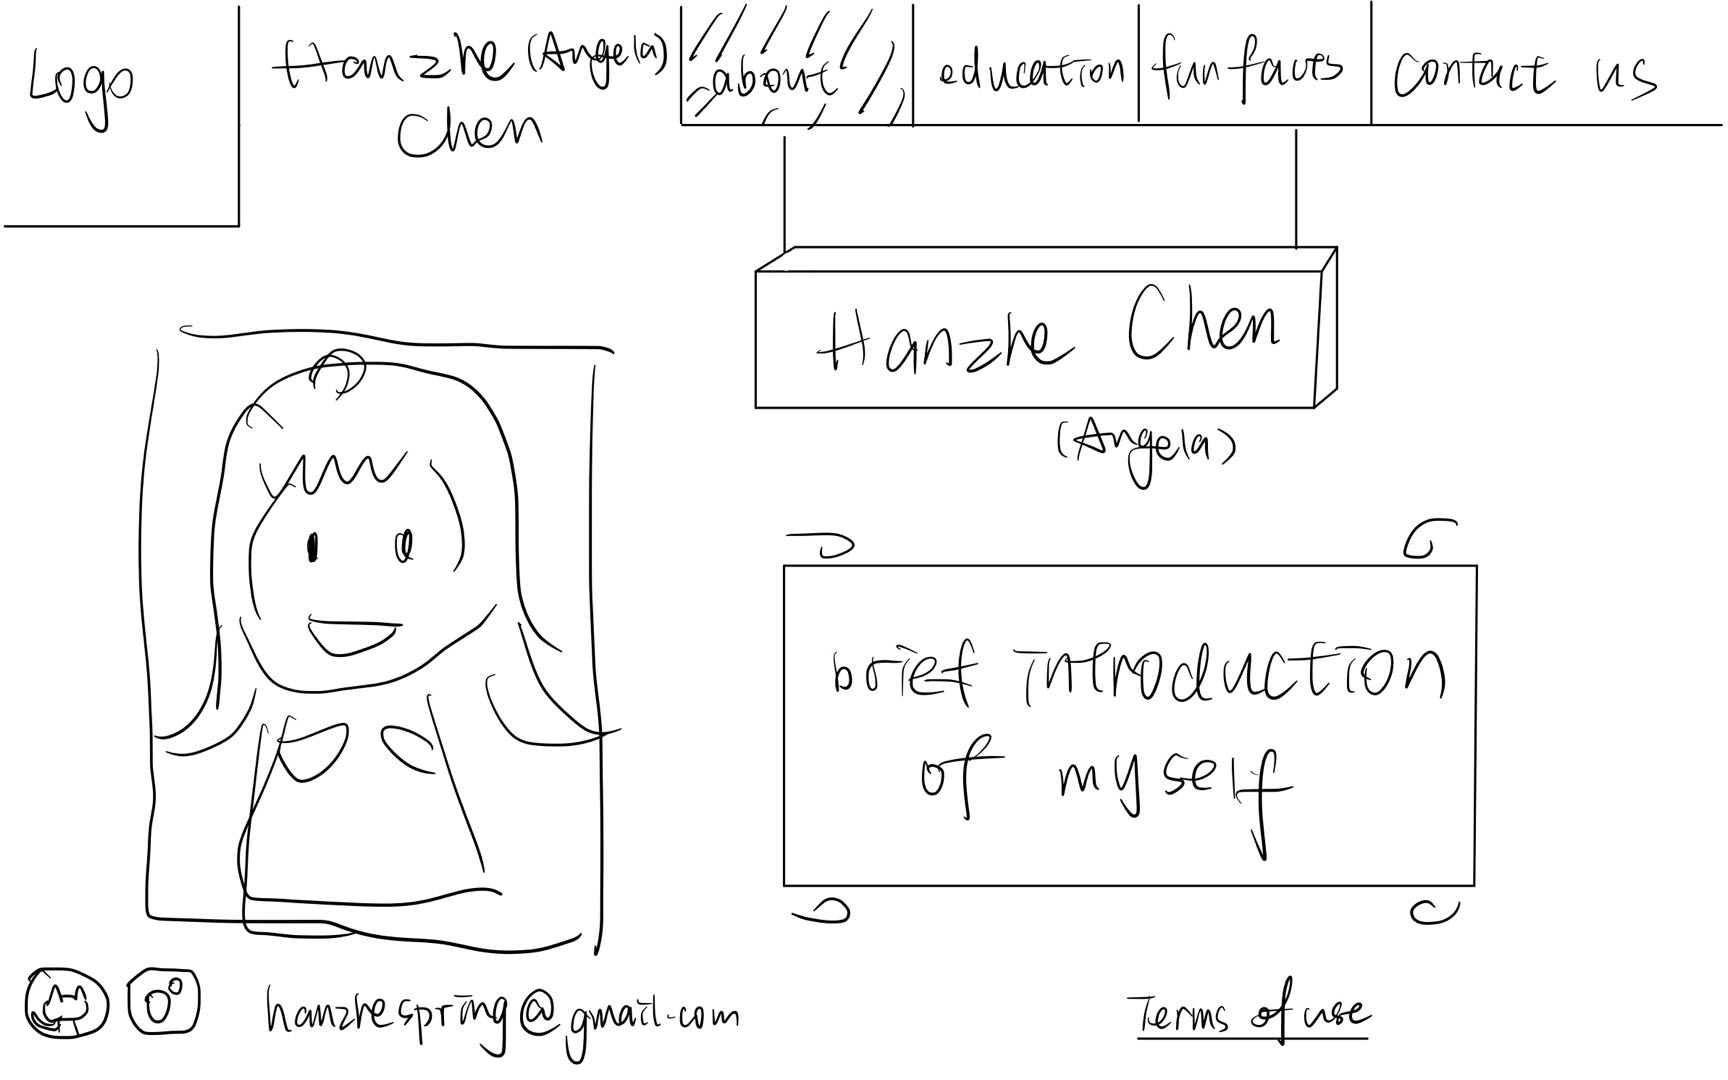 Logo
Hanzhe (Angela)
Chen
about
education
fun facts
contact us
Hanzhe Chen
(Angela)
brief introduction
of myself
hanzhespring@gmail.com
Terms of use